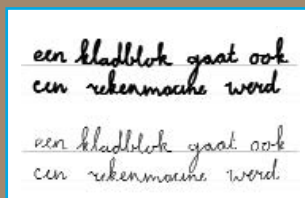 een kladblok gaat ook
een rekenmacine werd
een kladblok gaat ook
een rekenmacine werd